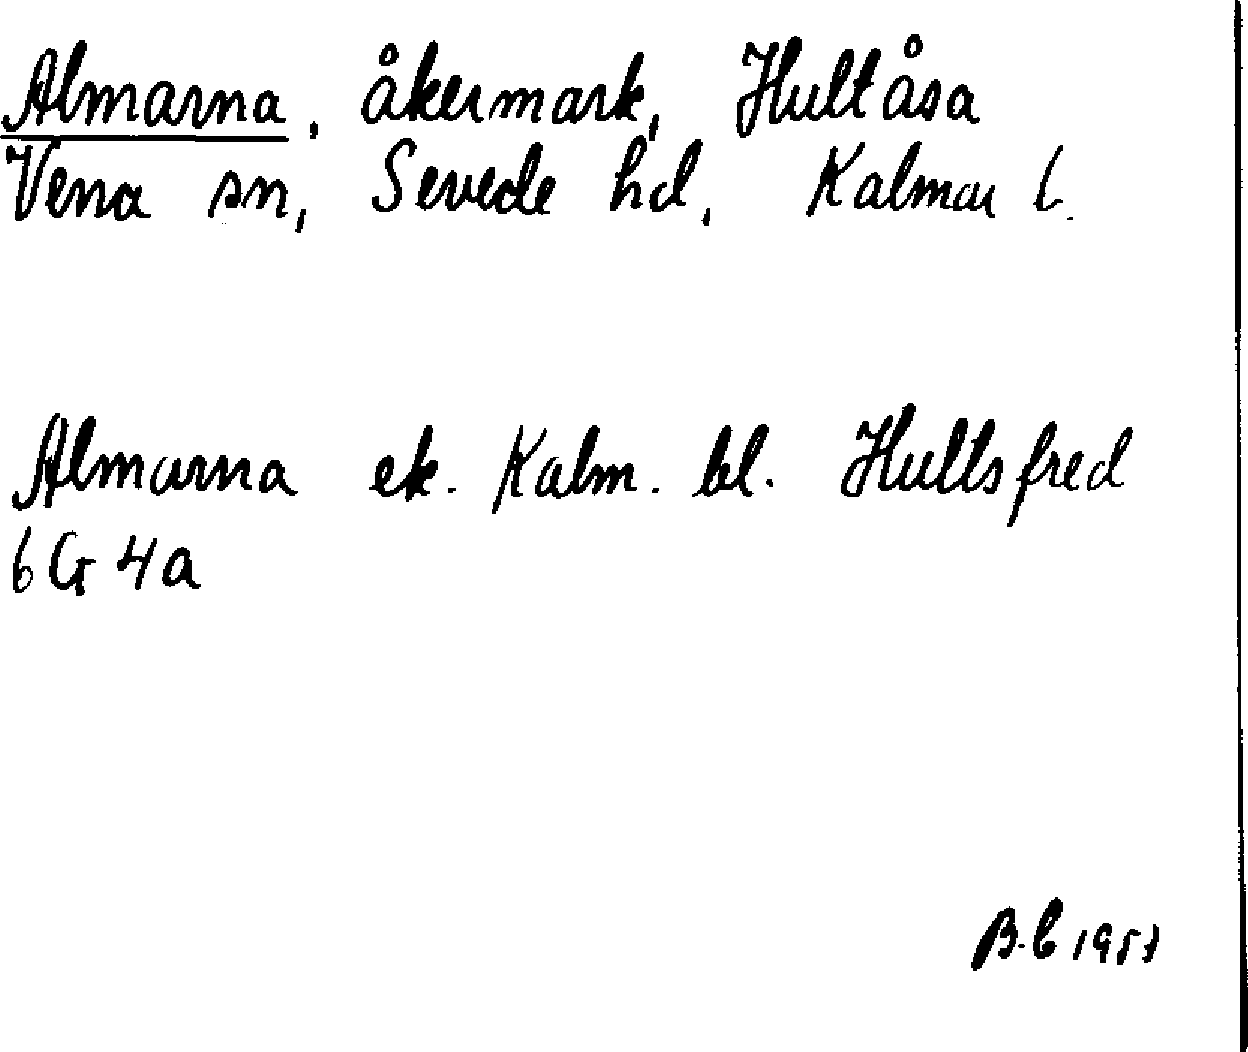 Almarna, åkermark, Hultåsa
Vena sn, Sevede hd, Kalmar l.
Almarna ek. Kalm. bl. Hultsfred
6G4a
B.L 1957